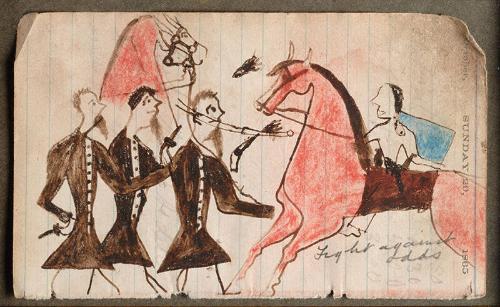 Fight against
odds
SUNDAY 20,
1865